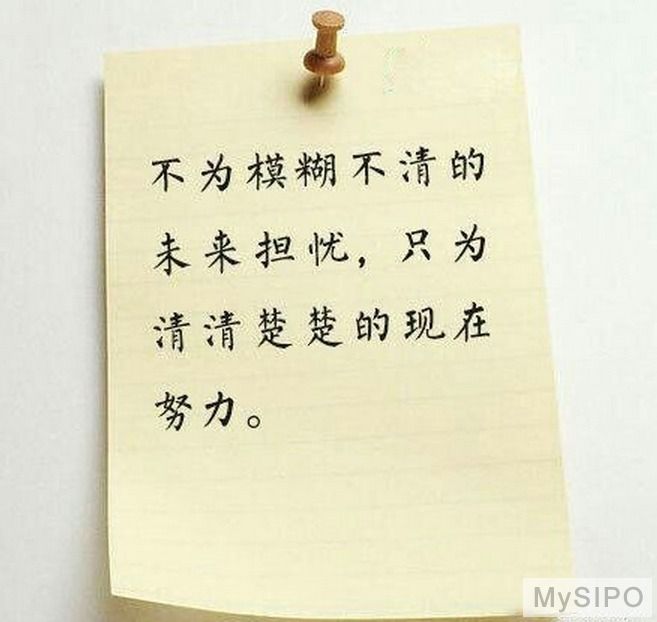 不为模糊不清的
未来担忧，只为
清清楚楚的现在
努力。
MySIPO